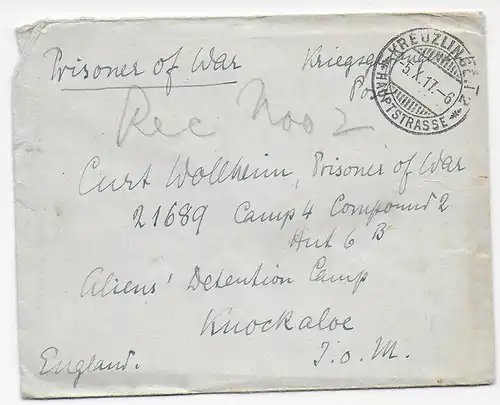 Prisoner of War
KREUZLINGEN 2
5.X.17.-6
HAUPTSTRASSE
Rec Nov 2
Curt Wollheim, Prisoner of War
21689 Camp 4 Compound 2
Hut 6 B
Aliens' Detention Camp
Knockaloe
England. I.o.M.